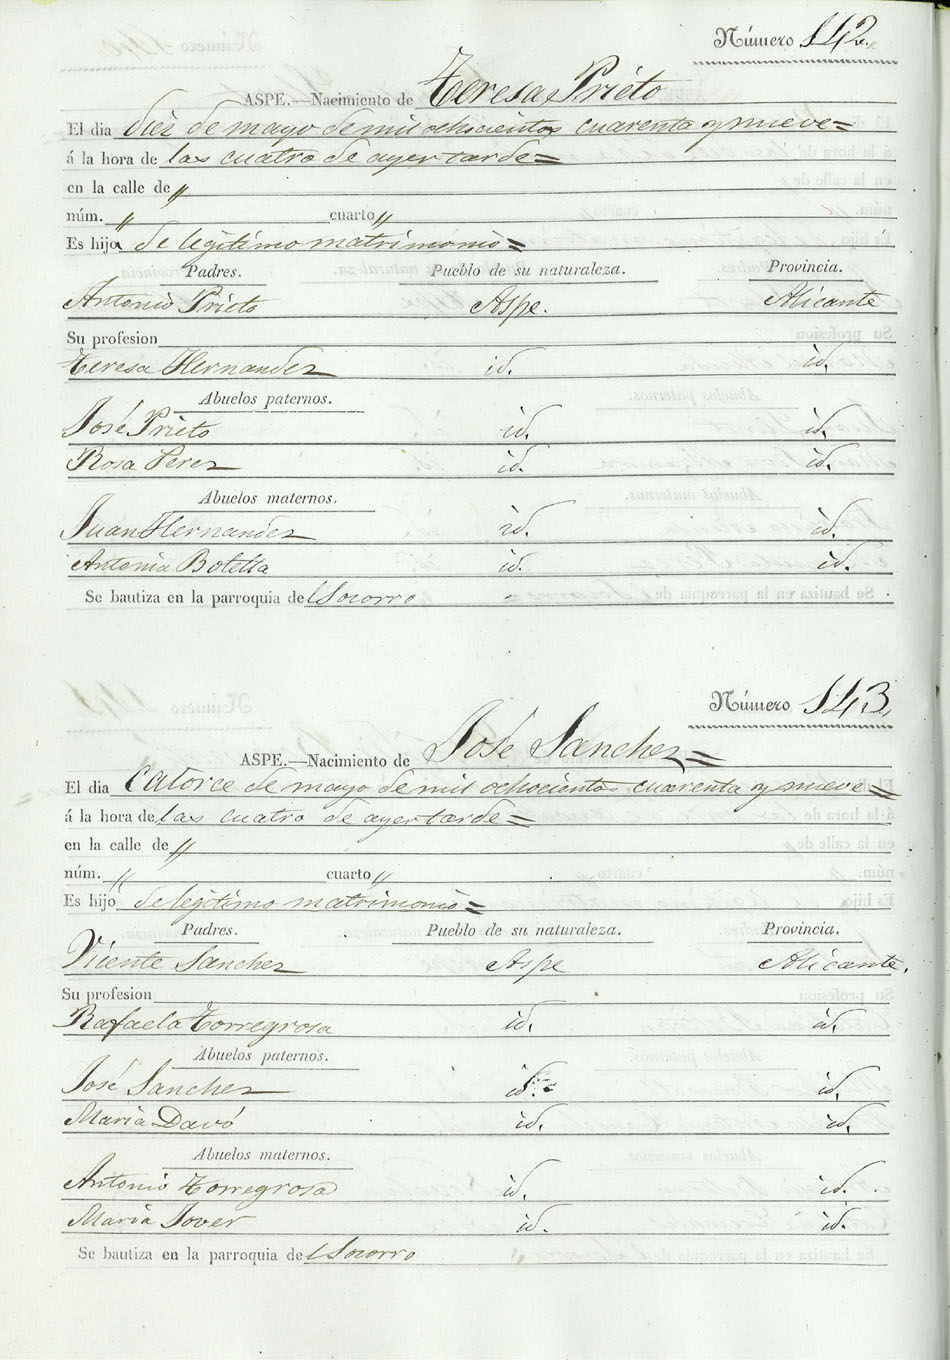 Número 142.
ASPE.—Nacimiento de Teresa Prieto
El dia diez de mayo de mil ochocientos cuarenta y nueve=
á la hora de las cuatro de ayer tarde=
en la calle de "
núm. " cuarto "
Es hija de legítimo matrimonio=
Padres. Pueblo de su naturaleza. Provincia.
Antonio Prieto Aspe. Alicante
Su profesion
Teresa Hernandez id. id.
Abuelos paternos.
José Prieto id. id.
Rosa Perez id. id.
Abuelos maternos.
Juan Hernandez id. id.
Antonia Botella id. id.
Se bautiza en la parroquia del Socorro
Número 143.
ASPE.—Nacimiento de José Sanchez=
El dia Catorce de mayo de mil ochocientos cuarenta y nueve=
á la hora de las cuatro de ayer tarde=
en la calle de "
núm. " cuarto "
Es hijo de legítimo matrimonio=
Padres. Pueblo de su naturaleza. Provincia.
Vicente Sanchez Aspe Alicante.
Su profesion
Rafaela Torregrosa id. id.
Abuelos paternos.
José Sanchez id. id.
Maria Davó id. id.
Abuelos maternos.
Antonio Torregrosa id. id.
Maria Jover id. id.
Se bautiza en la parroquia del Socorro